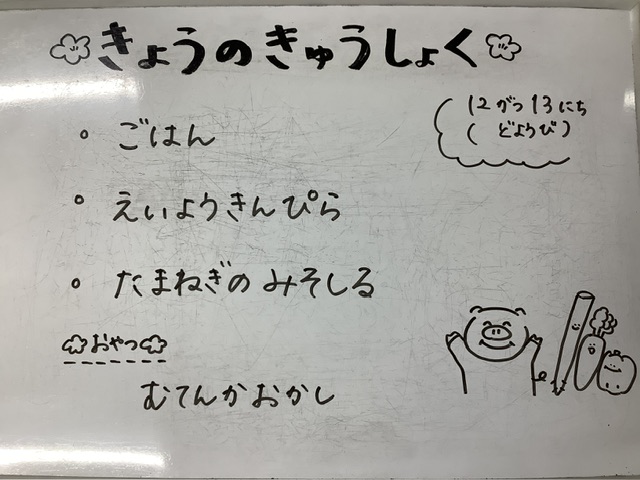 きょうのきゅうしょく
12がつ13にち
(どようび)
。ごはん
。えいようきんぴら
。たまねぎのみそしる
おやつ
むてんかおかし